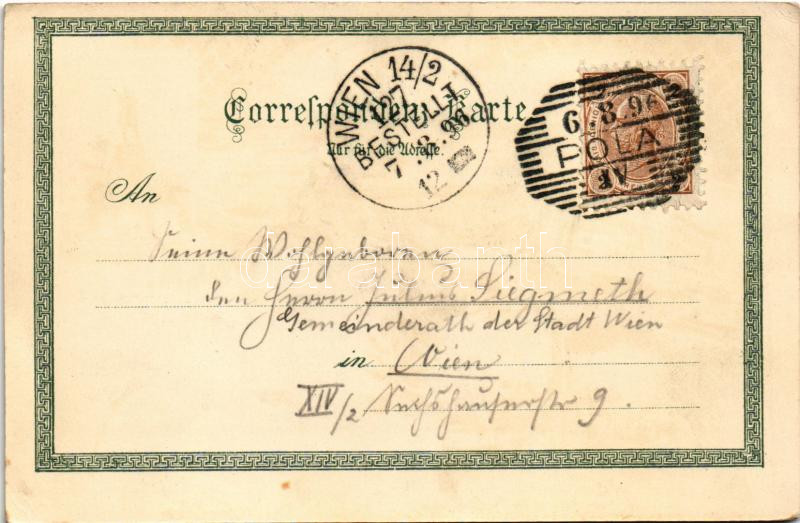 Correspondenz-Karte.
Nur für die Adresse.
WIEN 14/2
BESTELLT
7.8.96
12
6.8.96
POLA
An
Seine Wohlgeboren
den Herrn Julius Siegmeth
Gemeinderath der Stadt Wien
in Wien
XIV/2 Sechshauserstr 9.
darabanth